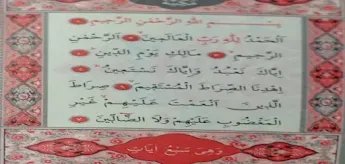 بِسْمِ اللَّهِ الرَّحْمَٰنِ الرَّحِيمِ
الْحَمْدُ لِلَّهِ رَبِّ الْعَالَمِينَ الرَّحْمَٰنِ
الرَّحِيمِ مَالِكِ يَوْمِ الدِّينِ
إِيَّاكَ نَعْبُدُ وَإِيَّاكَ نَسْتَعِينُ
اهْدِنَا الصِّرَاطَ الْمُسْتَقِيمَ صِرَاطَ
الَّذِينَ أَنْعَمْتَ عَلَيْهِمْ غَيْرِ
الْمَغْضُوبِ عَلَيْهِمْ وَلَا الضَّالِّينَ
وَهِيَ سَبْعُ آيَاتٍ